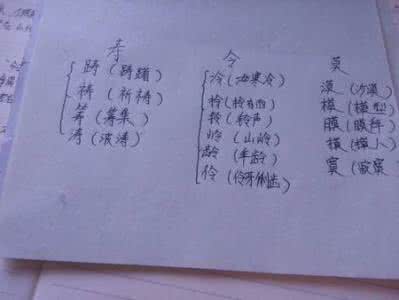 寿
踌(踌躇)
祷(祈祷)
筹(筹集)
涛(波涛)
令
冷(寒冷)
拎(拎东西)
铃(铃声)
岭(山岭)
龄(年龄)
伶(伶牙俐齿)
莫
漠(沙漠)
模(模型)
膜(膜拜)
寞(寂寞)